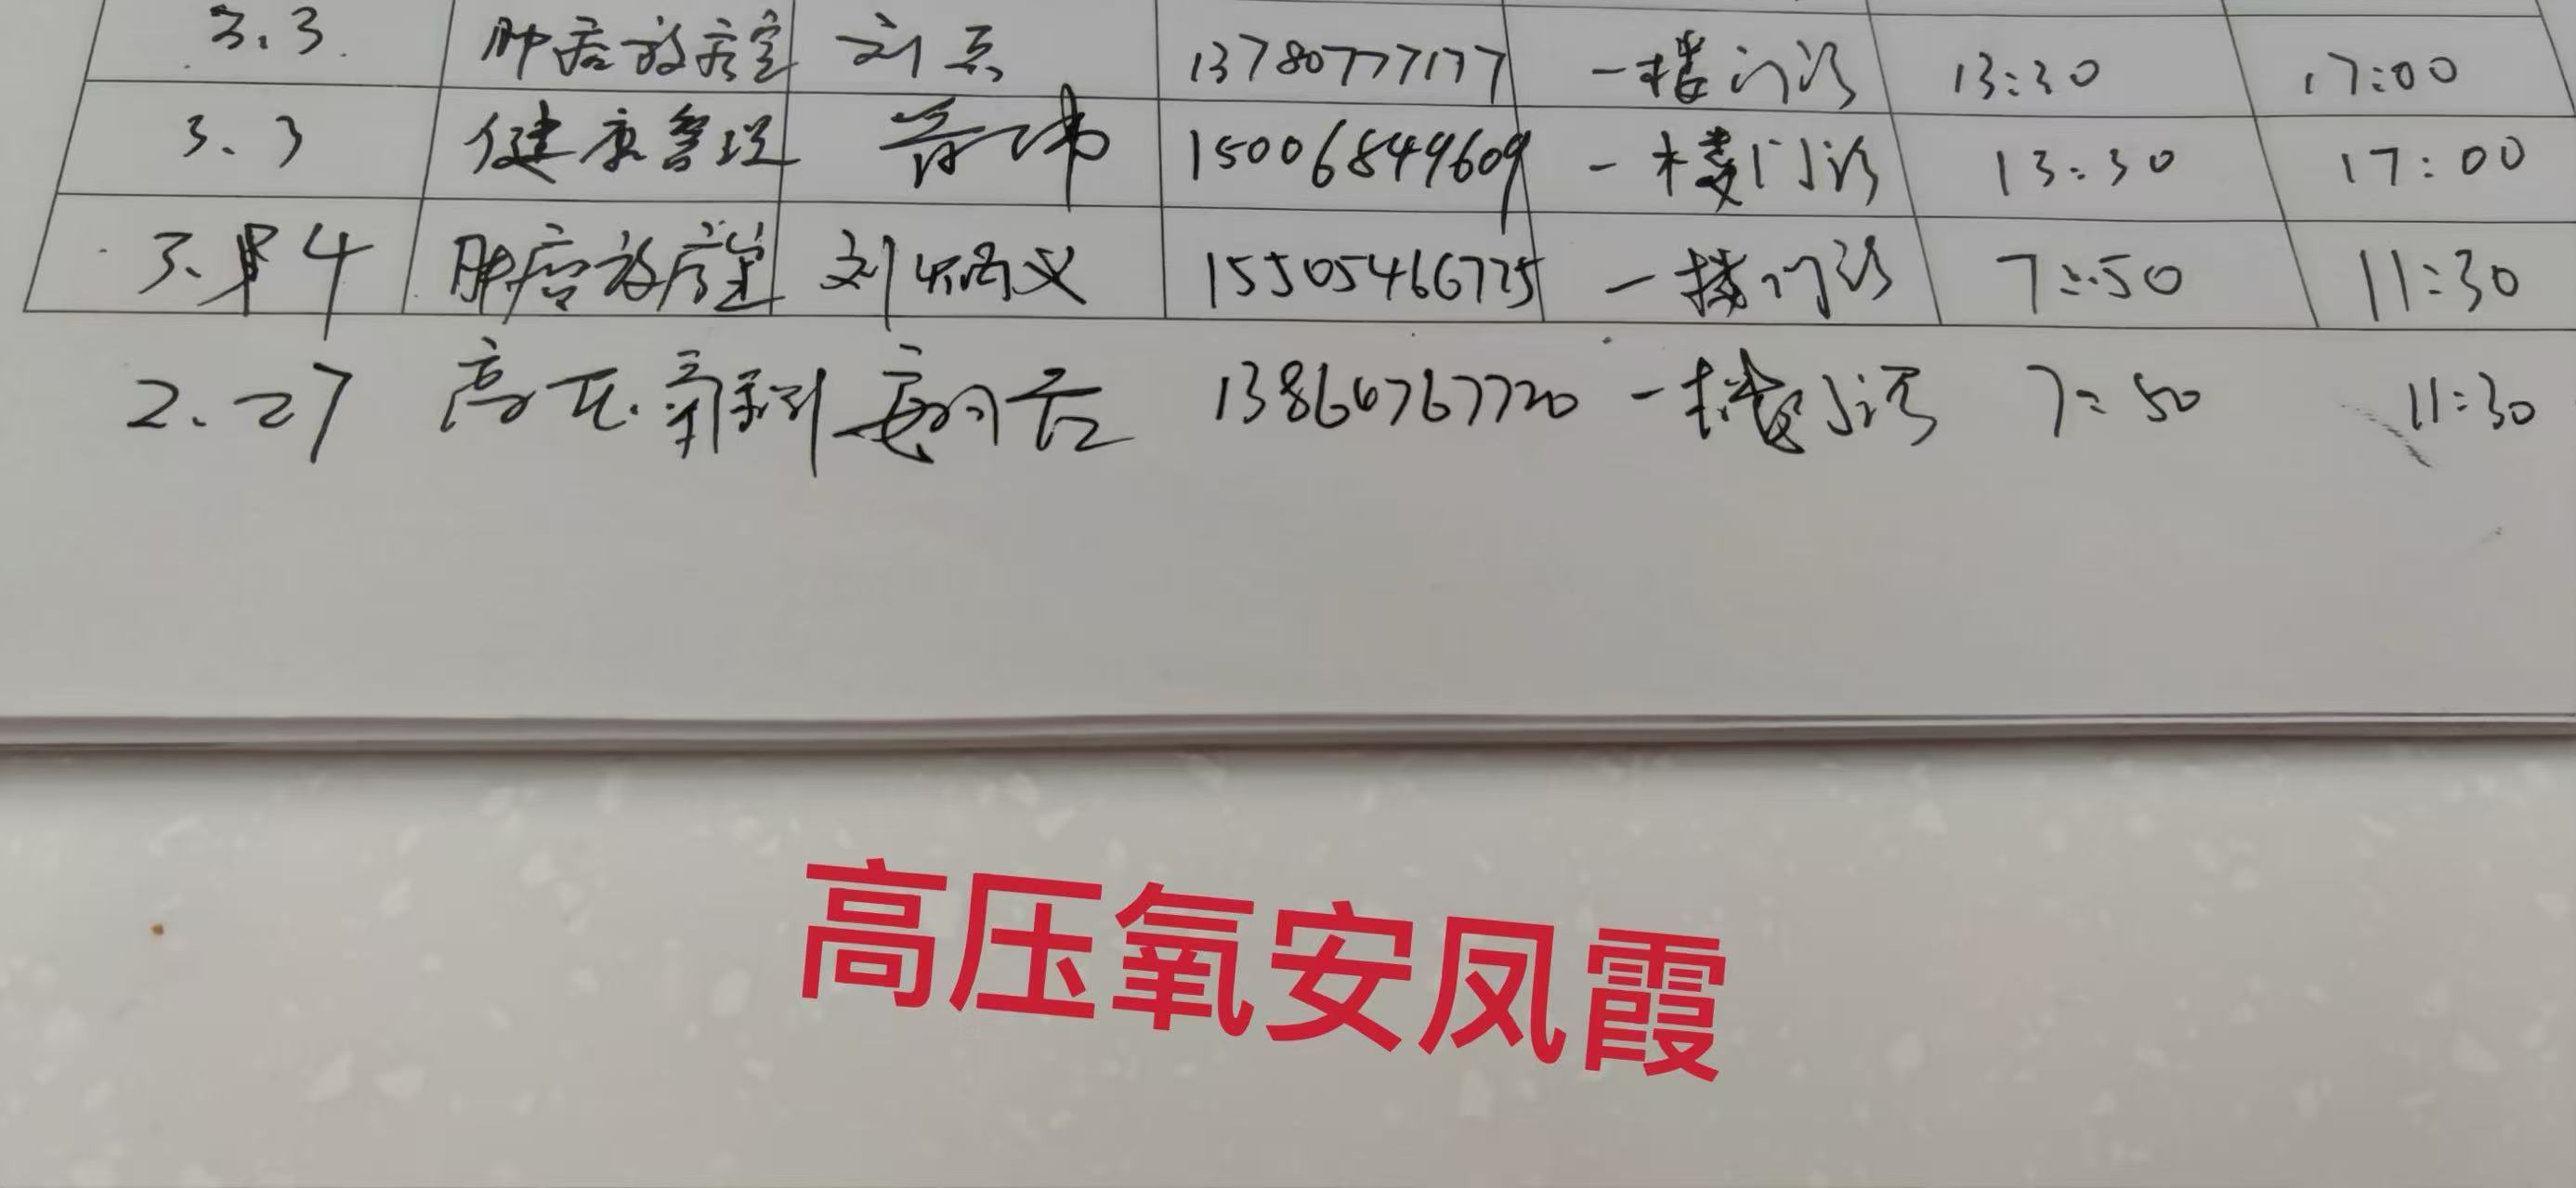 3.3 肿瘤放疗室 刘 13780777177 一楼门诊 13:30 17:00
3.3 健康管理 15006849609 一楼门诊 13:30 17:00
3.4 肿瘤放疗室 刘炳义 15505466725 一楼门诊 7:50 11:30
2.27 高压氧科 安凤霞 13864767720 一楼门诊 7:50 11:30
高压氧安凤霞